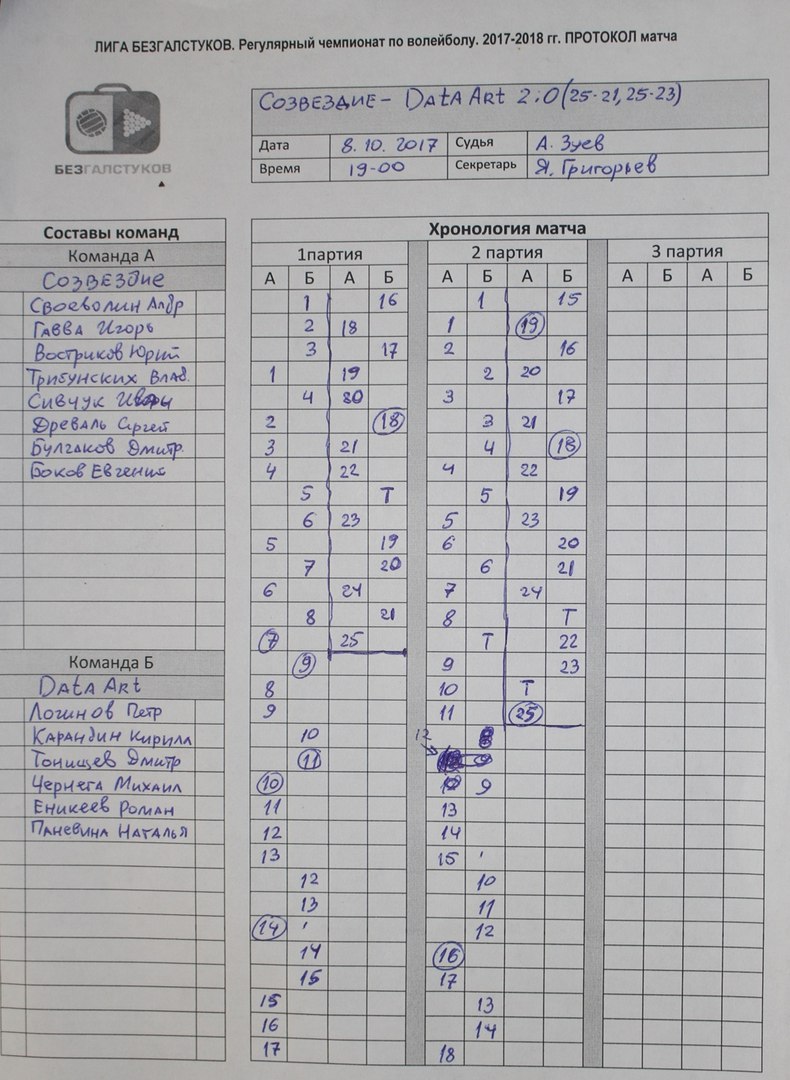 ЛИГА БЕЗГАЛСТУКОВ. Регулярный чемпионат по волейболу. 2017-2018 гг. ПРОТОКОЛ матча
БЕЗГАЛСТУКОВ
СОЗВЕЗДИЕ - DATA ART 2:0 (25-21, 25-23)
Дата 8.10.2017 Судья А. Зуев
Время 19-00 Секретарь Я. Григорьев
Составы команд
Команда А
СОЗВЕЗДИЕ
Своеволин Алдр
Гавва Игорь
Востриков Юрий
Трибунских Влад.
Сивчук Иван
Древаль Сергей
Булгаков Дмитр.
Боков Евгений
Команда Б
DATA ART
Логинов Петр
Карандин Кирилл
Тонищев Дмитр
Чернега Михаил
Еникеев Роман
Паневина Наталья
Хронология матча
1партия 2 партия 3 партия
А Б А Б А Б А Б А Б А Б
1 16 1 15
2 18 1 19
3 17 2 16
1 19 2 20
4 20 3 17
2 18 3 21
3 21 4 18
4 22 4 22
5 Т 5 19
6 23 5 23
5 19 6 20
7 20 6 21
6 24 7 24
8 21 8 Т
7 25 Т 22
9 9 23
8 10 Т
9 11 25
10 12 8
11
10 9
11 13
12 14
13 15 '
12 10
13 11
14 ' 12
14 16
15 17
15 13
16 14
17 18